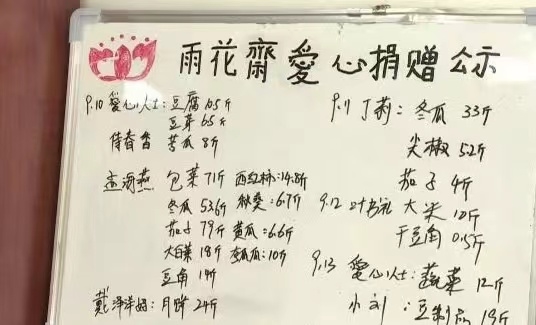 雨花齋愛心捐赠公示
9.10 愛心人士：豆腐65斤
豆芽65斤
侍春香 苦瓜8斤
孟海燕 包菜71斤 西红柿：14.8斤
冬瓜53.6斤 秋葵：6.7斤
茄子79斤 黄瓜：6.6斤
大白菜18斤 南瓜：10斤
豆角19斤
戴洋洋妈：月饼24斤
9.11 丁莉：冬瓜 33斤
尖椒 52斤
茄子 4斤
9.12 叶书元 大米 10斤
干豆角 0.5斤
9.13 愛心人士：蔬菜 12斤
小刘：豆制品 19斤